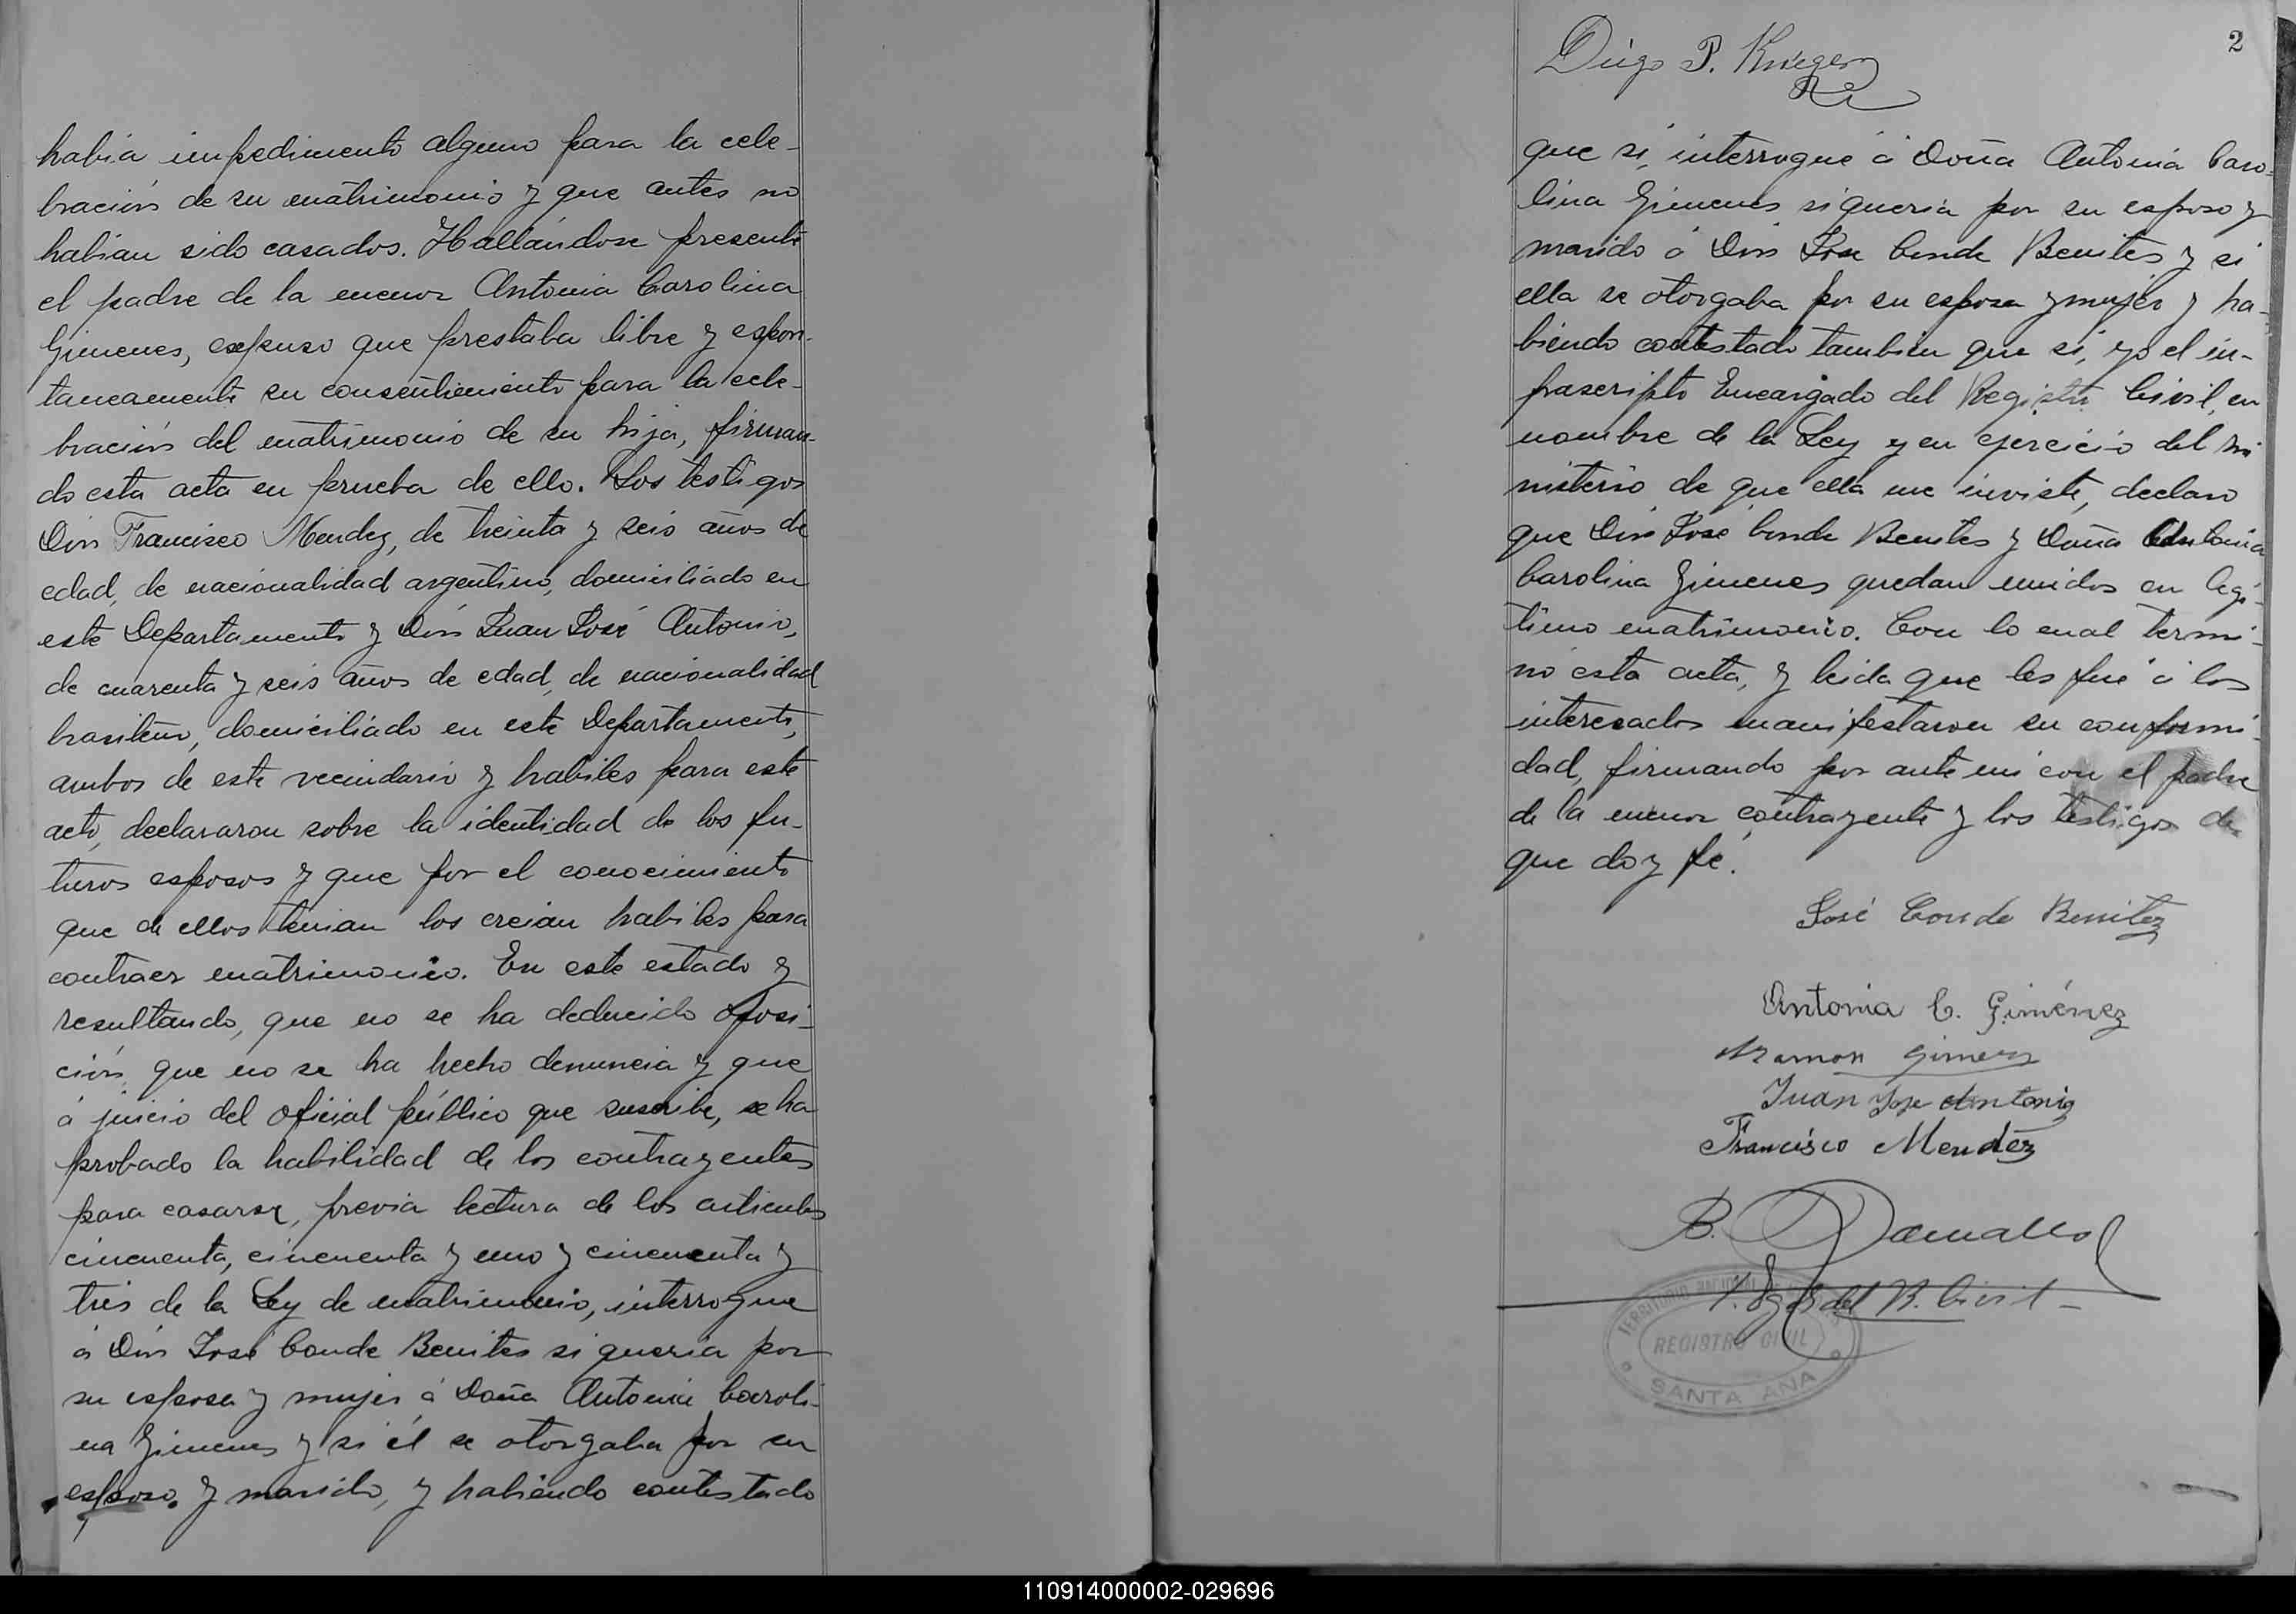 habia impedimento alguno para la cele-
bración de su matrimonio y que antes no
habian sido casados. Hallándose presente
el padre de la menor Antonia Carolina
Gimenes, expuso que prestaba libre y espon-
taneamente su consentimiento para la cele-
bración del matrimonio de su hija, firman-
do esta acta en prueba de ello. Los testigos
Don Francisco Mendez, de treinta y seis años de
edad, de nacionalidad argentino, domiciliado en
este Departamento y Don Juan José Antonio,
de cuarenta y seis años de edad, de nacionalidad
brasilero, domiciliado en este Departamento,
ambos de este vecindario y habiles para este
acto, declararon sobre la identidad de los fu-
turos esposos y que por el conocimiento
que de ellos tenian los creian habiles para
contraer matrimonio. En este estado y
resultando, que no se ha deducido oposi-
ción, que no se ha hecho denuncia y que
á juicio del oficial público que suscribe, se ha
probado la habilidad de los contrayentes
para casarse, previa lectura de los articulos
cincuenta, cincuenta y uno y cincuenta y
tres de la Ley de matrimonio, interrogue
á Don José Conde Benites si queria por
su esposa y mujer á Doña Antonia Caroli-
na Gimenes y si él se otorgaba por su
esposo y marido, y habiendo contestado
2
Diego P. Krieger
que si, interrogue á Doña Antonia Caro-
lina Gimenes si queria por su esposo y
marido á Don José Conde Benites y si
ella se otorgaba por su esposa y mujer y ha-
biendo contestado tambien que si, yo el in-
frascripto Encargado del Registro Civil, en
nombre de la Ley y en ejercicio del mi
nisterio de que ella me inviste, declaro
que Don José Conde Benites y Doña Antonia
Carolina Gimenes quedan unidos en legi-
timo matrimonio. Con lo cual termi-
nó esta acta, y leida que les fué á los
interesados manifestaron su conformi-
dad, firmando por ante mi con el padre
de la menor contrayente y los testigos de
que doy fé.
José Conde Benitez
Antonia C. Giménez
Ramon Gimenez
Juan Jose Antonio
Francisco Mendez
B.
del R. Civil
TERRITORIO NACIONAL DE
REGISTRO CIVIL
SANTA ANA
110914000002-029696